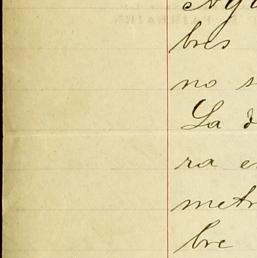 bres
no s
La d
ra e
metr
bre